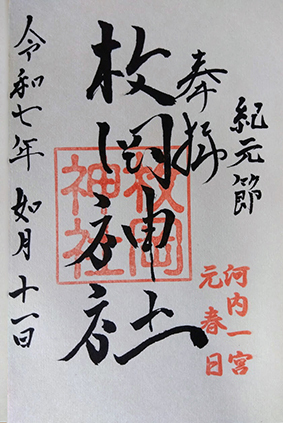 紀元節
河内一宮
元春日
奉拝
枚岡神社
枚岡
神社
令和七年 如月 十一日